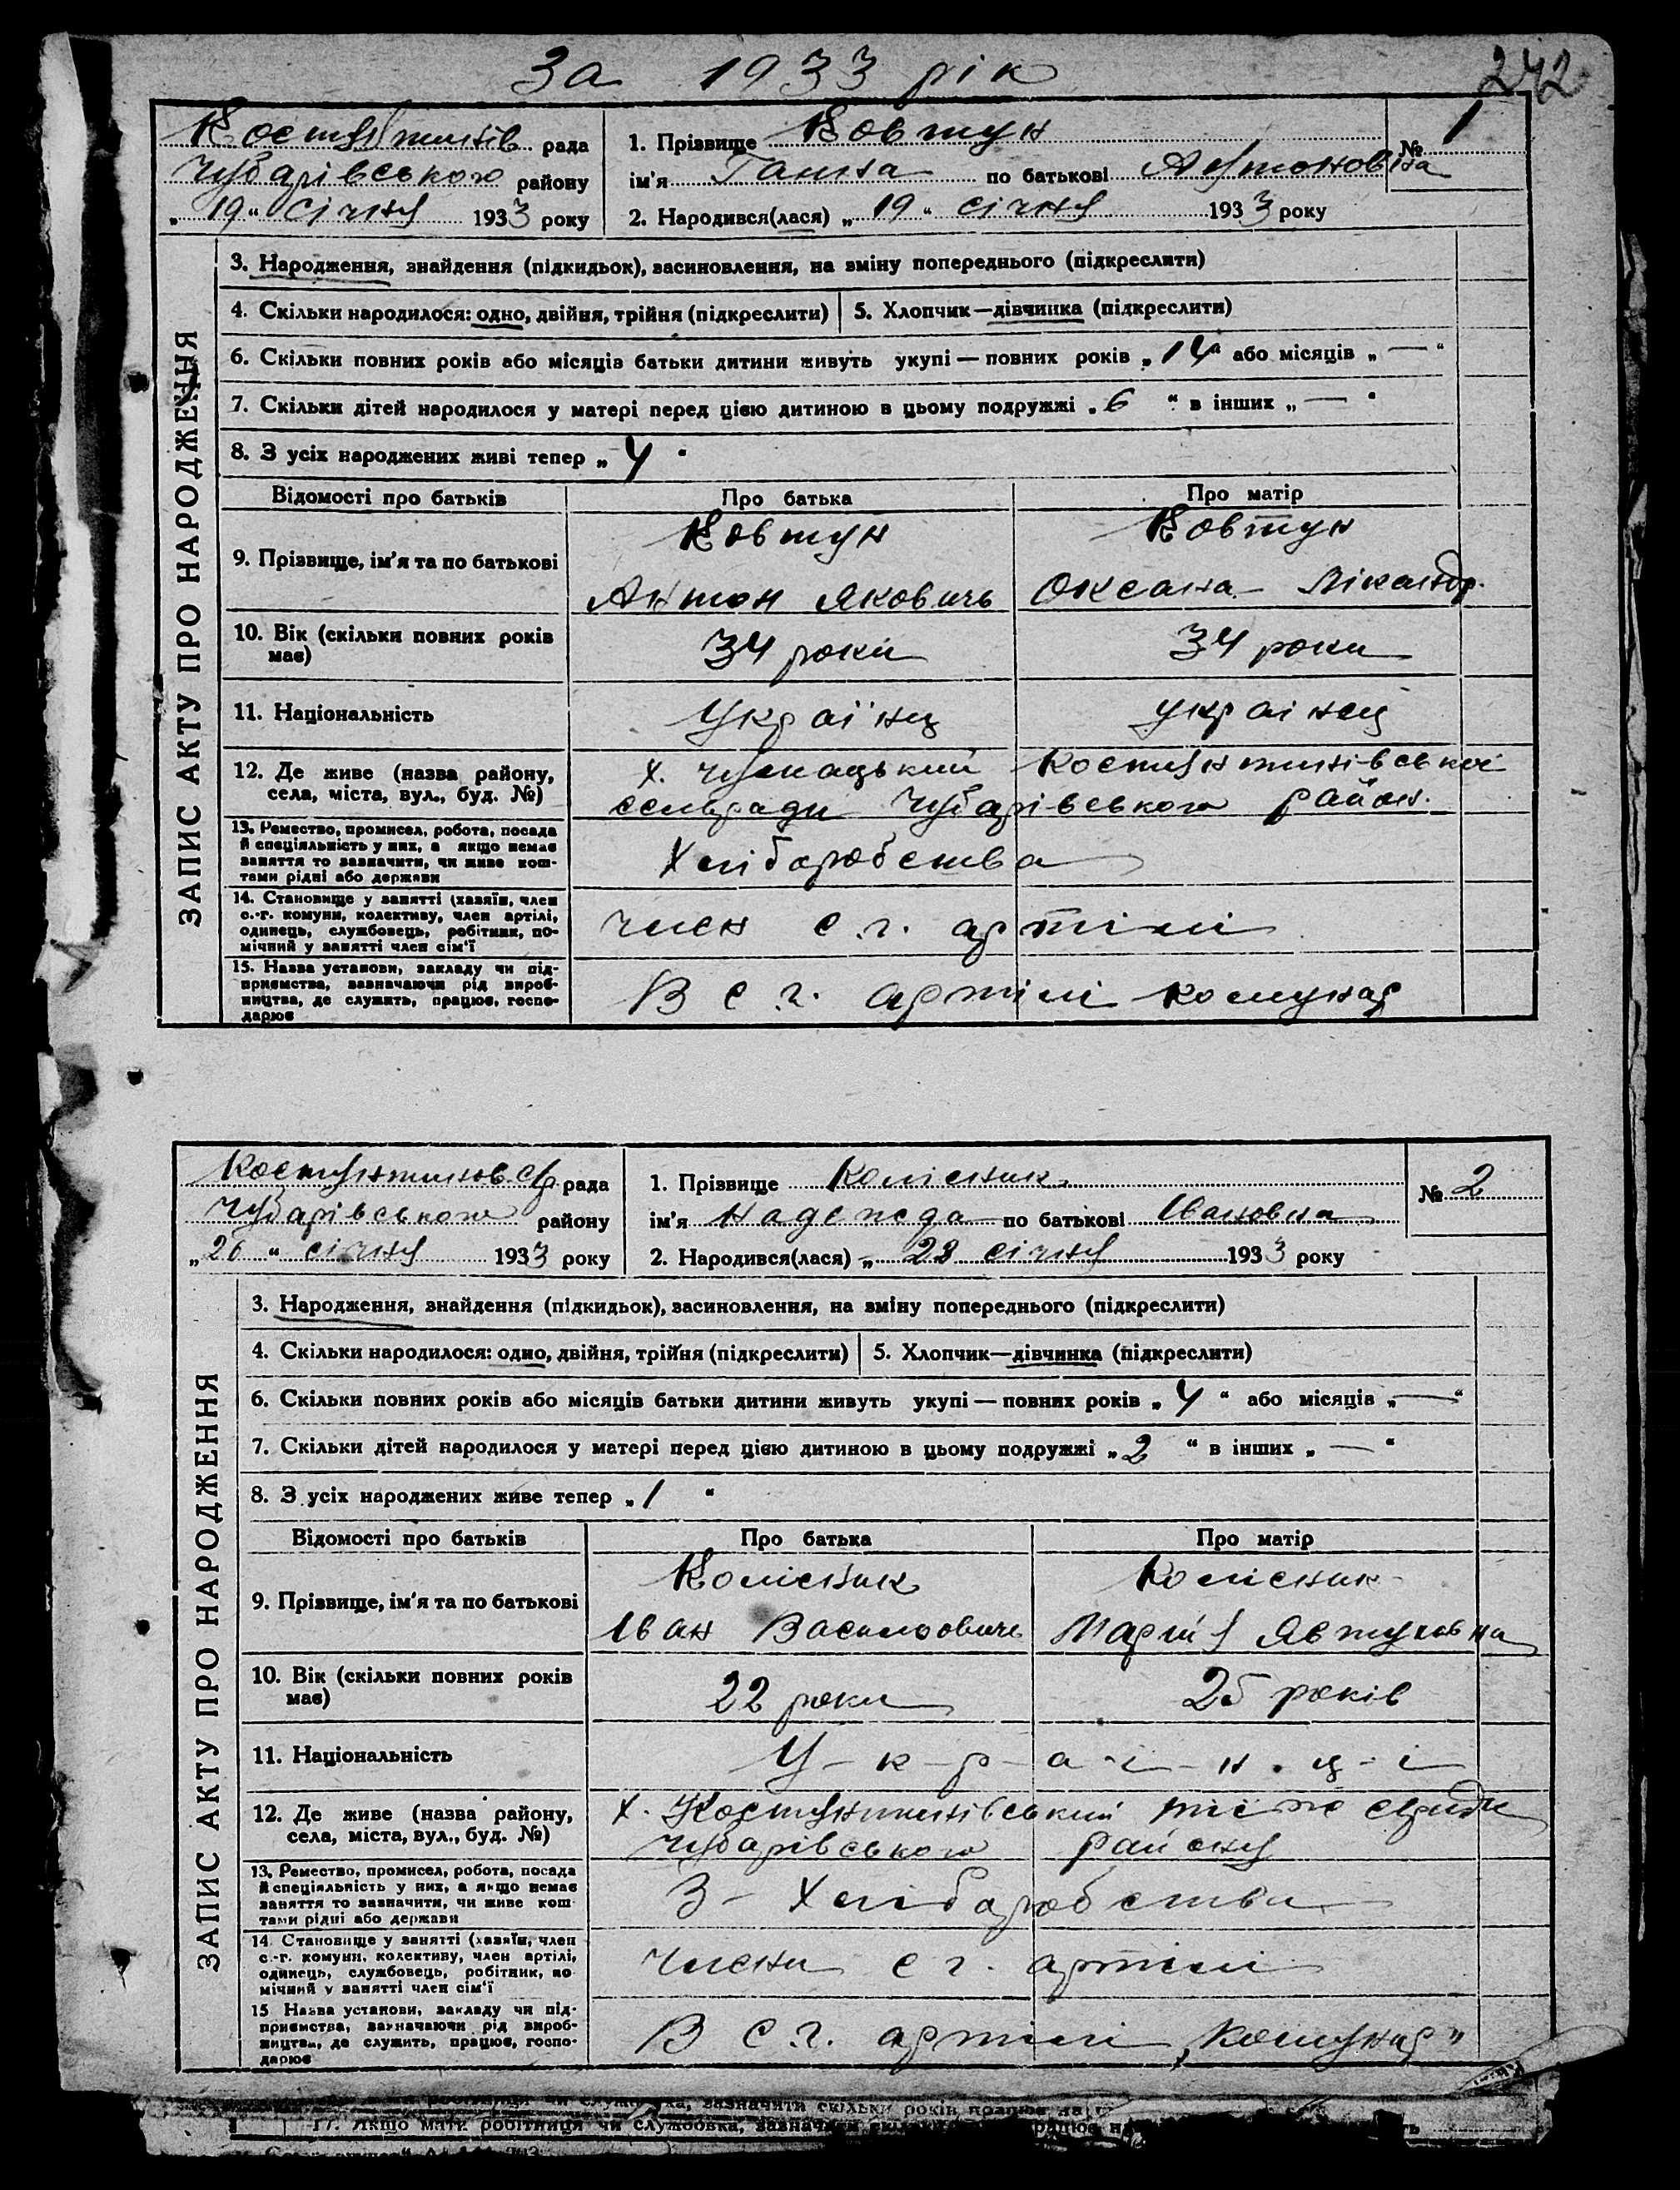 За 1933 рік
242
Костянтинів рада
Чубарівського району
„ 19 “ Січня 1933 року
1. Прізвище Ковтун
№ 1
ім'я Ганна по батькові Антоновна
2. Народився(лася) „ 19 “ січня 1933 року
ЗАПИС АКТУ ПРО НАРОДЖЕННЯ
3. Народження, знайдення (підкидьок), васиновлення, на зміну попереднього (підкреслити)
4. Скільки народилося: одно, двійня, трійня (підкреслити)
5. Хлопчик—дівчинка (підкреслити)
6. Скільки повних років або місяців батьки дитини живуть укупі — повних років „ 14 “ або місяців „ — “
7. Скільки дітей народилося у матері перед цією дитиною в цьому подружжі „ 6 “ в інших „ — “
8. З усіх народжених живі тепер „ 4 “
Відомості про батьків
Про батька
Про матір
9. Прізвище, ім'я та по батькові
Ковтун
Антон Яковичь
Ковтун
Оксана Нікандр.
10. Вік (скільки повних років
має)
34 роки
34 роки
11. Національність
Українц
українц
12. Де живе (назва району,
села, міста, вул., буд. №)
х. Чумацький Костянтинівської
сельради Чубарівського район.
13. Ремество, промисел, робота, посада
й спеціяльність у них, а якщо немає
заняття то зазначити, чи живе кош-
тами рідні або держави
Хліборобства
14. Становище у занятті (хазяїн, член
с.-г. комуни, колективу, член артілі,
одинець, службовець, робітник, по-
мічний у занятті член сім'ї
член с.г. артілі
15. Назва установи, закладу чи під-
приємства, зазначаючи рід вироб-
ництва, де служить, працює, госпо-
дарює
В с.г. артілі комунар
Костянтиновср рада
Чубарівського району
„ 26 “ січня 1933 року
1. Прізвище Колісник
№ 2
ім'я Надежда по батькові Івановна
2. Народився(лася) „ 23 січня 1933 року
ЗАПИС АКТУ ПРО НАРОДЖЕННЯ
3. Народження, знайдення (підкидьок), васиновлення, на зміну попереднього (підкреслити)
4. Скільки народилося: одно, двійня, трійня (підкреслити)
5. Хлопчик—дівчинка (підкреслити)
6. Скільки повних років або місяців батьки дитини живуть укупі — повних років „ 4 “ або місяців „ — “
7. Скільки дітей народилося у матері перед цією дитиною в цьому подружжі „ 2 “ в інших „ — “
8. З усіх народжених живе тепер „ 1 “
Відомості про батьків
Про батька
Про матір
9. Прізвище, ім'я та по батькові
Колісник
Іван Васильовичь
Колісник
Марія Явтуховна
10. Вік (скільки повних років
має)
22 роки
25 років
11. Національність
У-к-р-а-ї-н-ц-і
12. Де живе (назва району,
села, міста, вул., буд. №)
х. Костянтинівський тієж
Чубарівського району
13. Ремество, промисел, робота, посада
й спеціяльність у них, а якщо немає
заняття то зазначити, чи живе кош-
тами рідні або держави
З- Хліборобства
14. Становище у занятті (хазяїн, член
с.-г. комуни, колективу, член артілі,
одинець, службовець, робітник, по-
мічний у занятті член сім'ї
члени с г. артілі
15 Назва установи, закладу чи під-
приємства, зазначаючи рід вироб-
ництва, де служить, працює, госпо-
дарює
В с.г. артілі „Комунар"
зазначити скільки років працює
17. Якщо мати робітниця чи службовка,